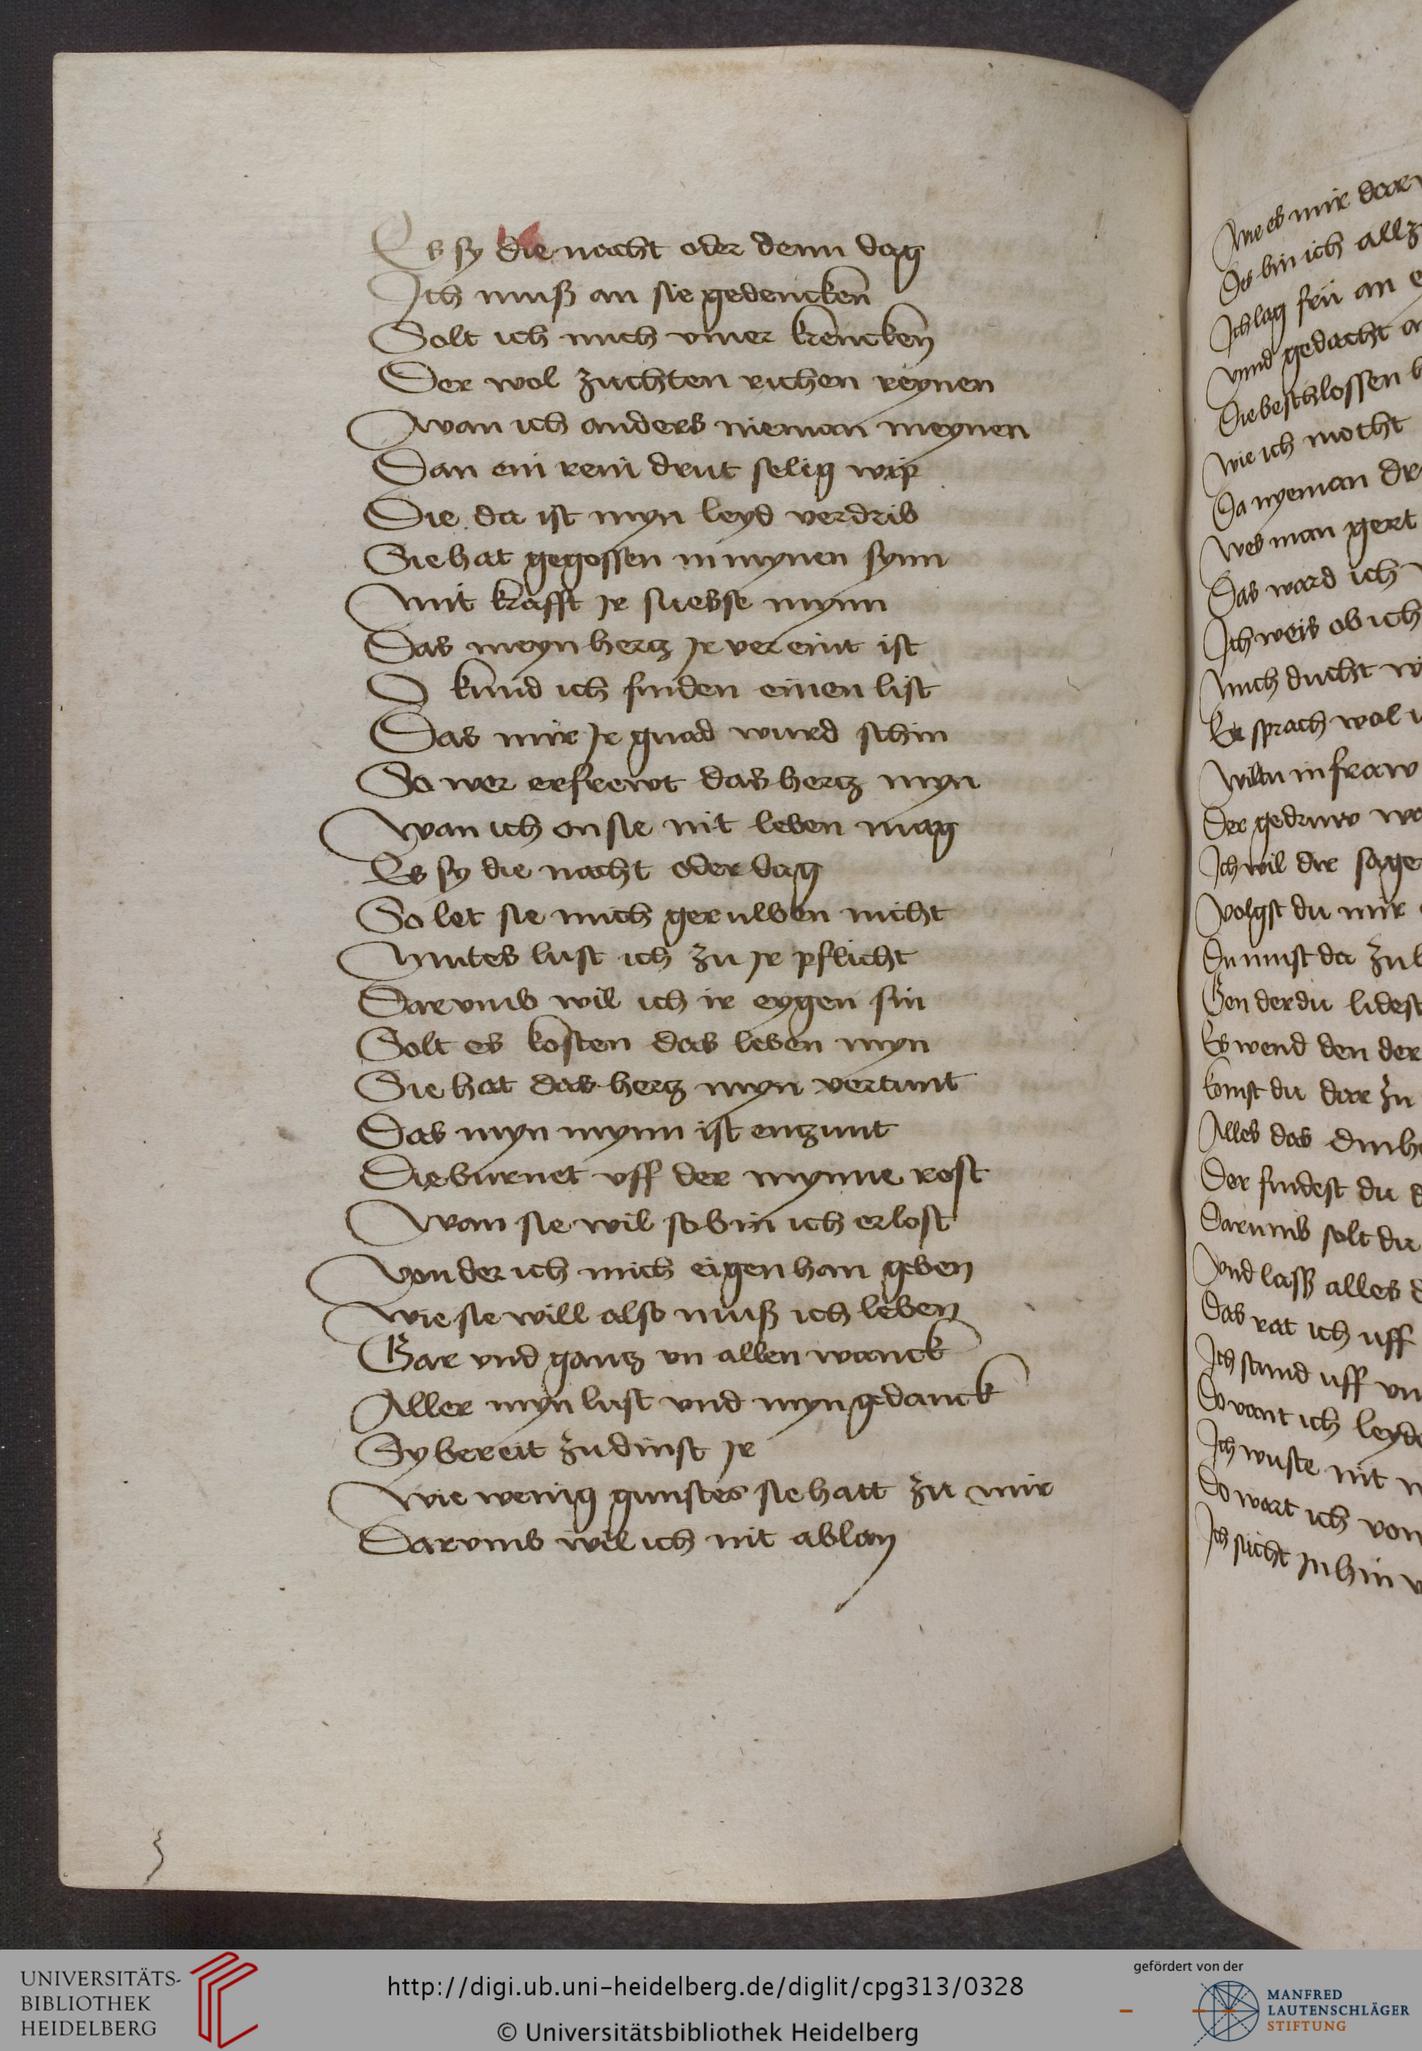 Es sy die nacht oder denn dag
Ich muß an sie gedencken
Solt ich mich vmer krencken
Der wol zuchten richen reynen
Wan ich anders nieman meynen
Dan ein rein drut selig wip
Die da ist myn leyd verdrib
Sie hat gegossen in mynen synn
Mit krafft Jr suesse mynn
Das meyn hertz Jr vereint ist
O kund ich finden einen list
Das mir Jr gnad wurd schin
So wer erfrewt das hertz myn
Wan ich on sie nit leben mag
Es sy die nacht oder dag
So let sie mich geruwen nicht
Mutes lust ich zu Jr pflicht
Darvmb wil ich ir eygen sin
Solt es kosten das leben myn
Sie hat das hertz myn
Das myn mynn ist entzunt
Die burnet vff der mynne rost
Wan sie wil so bin ich erlost
Von der ich mich eigen han geben
Wie sie will also muß ich leben
Gar vnd gantz on allen wanck
Aller myn lust vnd myn gedanck
Sy bereit zu dinst Jr
Wie wenig gunstes sie hatt zu mir
Darvmb wil ich nit ablan
Wie es mir dar
Des bin ich allz
Ich lag frü an
Vnnd gedacht
Die beschlossen
Wie ich mocht
Da nyeman
Wes man gert
Das ward ich
Ich weis ob ich
Mich ducht
Er sprach wol
Wiltu in fraw
Der gedruw
Ich wil dir sage
Volgst du mir
Du must da zu
Gen der du lidest
Es wend den der
Komst du dar zu
Alles das
Der findest du
Darumb solt du
Vnd lass alles
Das rat ich uff
Ich stund uff
Do wart ich leyd
Ich wuste nit
Do wart ich von
Ich sücht
UNIVERSITÄTS-
BIBLIOTHEK
HEIDELBERG
http://digi.ub.uni-heidelberg.de/diglit/cpg313/0328
© Universitätsbibliothek Heidelberg
gefördert von der
MANFRED
LAUTENSCHLÄGER
STIFTUNG